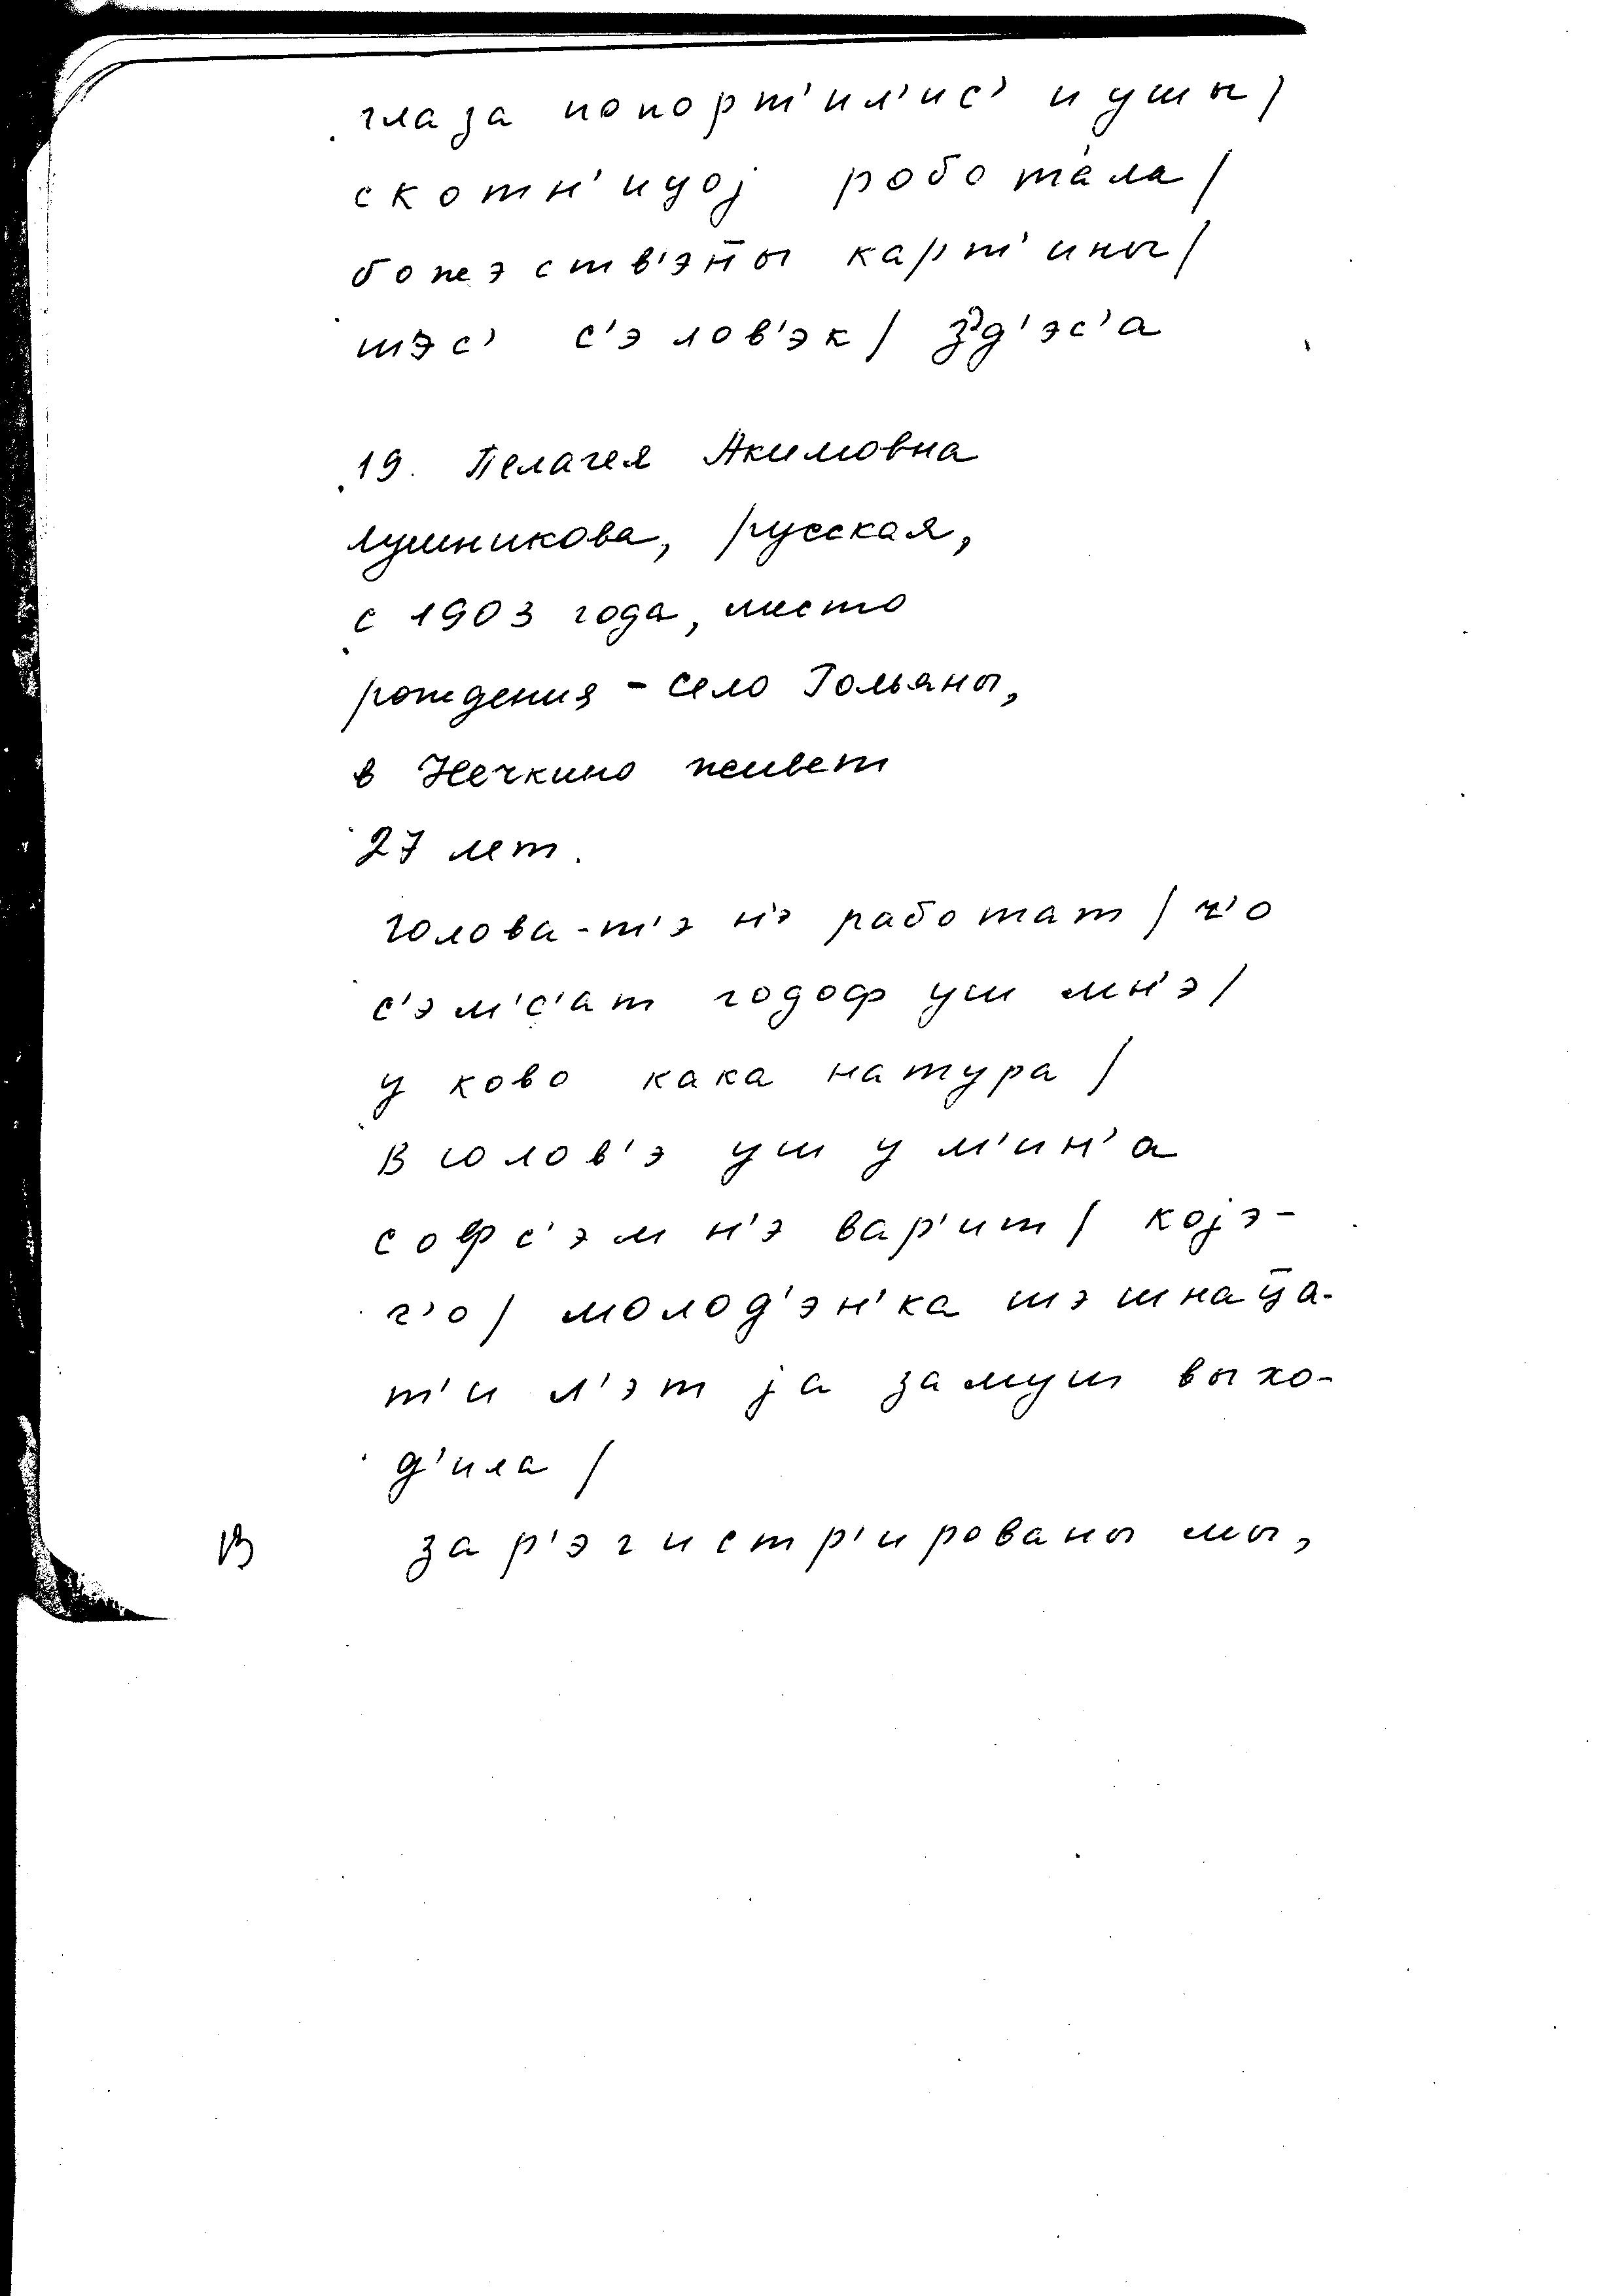 глаза попорт'ил'ис' и ушы/
скотн'ицој робота́ла/
божэств'эн̄ы карт'ины/
шэс' с'элов'эк/ з'д'эс'а
19. Пелагея Акимовна
Лушникова, русская,
с 1903 года, место
рождения - село Гольяны,
в Нечкино живет
27 лет.
голова-т'э н'э работат/ ч'о
с'эм'с'ат годоф уш мн'э/
у ково кака натура/
вголов'э уш у м'ин'а
софс'эм н'э вар'ит/ којэ-
ч'о/ молод'эн'ка шэшнац̄а-
т'и л'эт ја замуш выхо-
д'ила/
В зар'эгистр'ированы мы,